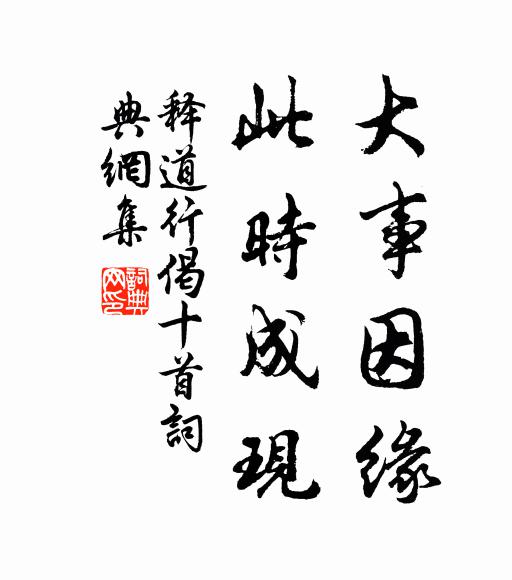 大事因缘
此時成現
释道行偈十首詞
典網集
詞典網印